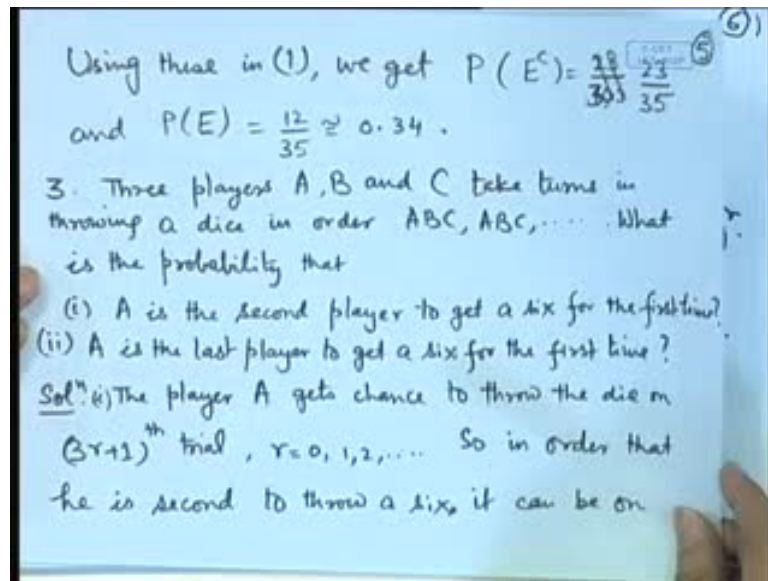 6)
Using these in (1), we get P(Eᶜ) = 23/35
5
and P(E) = 12/35 ≅ 0.34 .
3. Three players A, B and C take turns in
throwing a dice in order ABC, ABC, ..... What
is the probability that
(i) A is the second player to get a six for the first time?
(ii) A is the last player to get a six for the first time?
Solⁿ: (i) The player A gets chance to throw the die on
(3r+1)ᵗʰ trial, r=0, 1, 2, .... So in order that
he is second to throw a six, it can be on